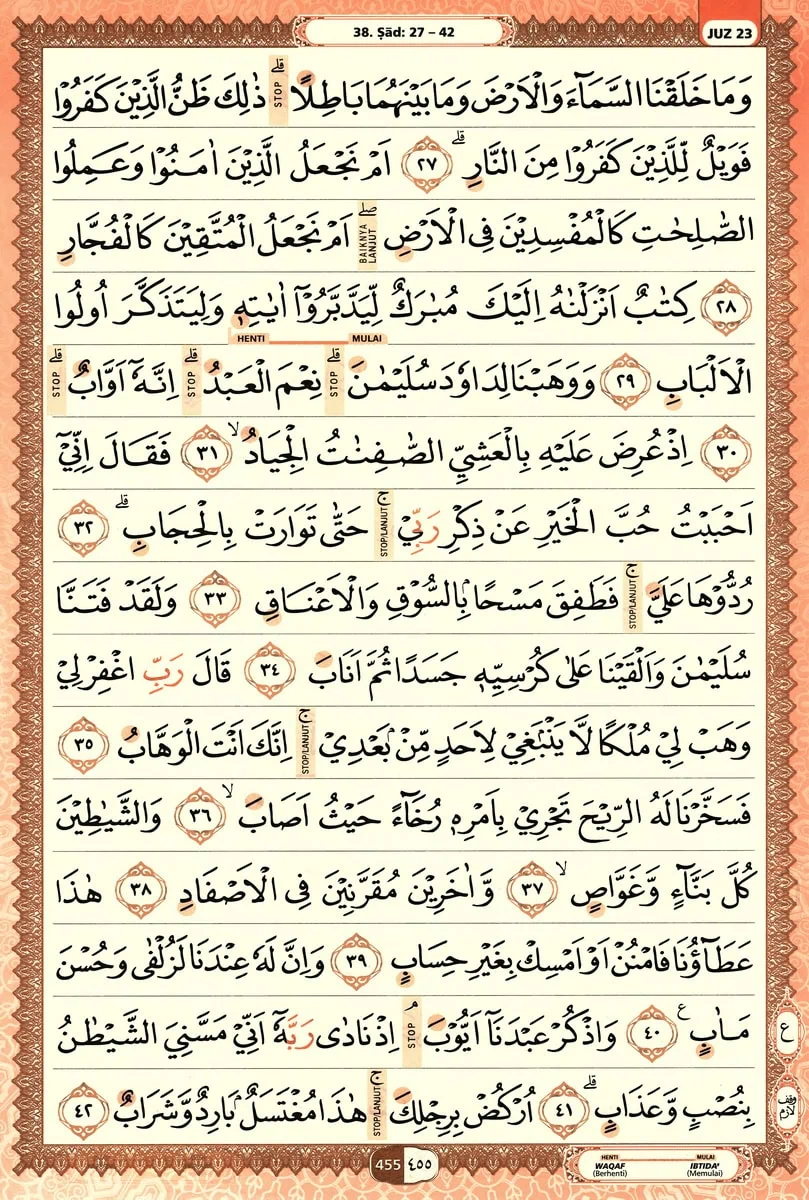 38. Ṣād: 27 – 42
JUZ 23
وَمَا خَلَقْنَا السَّمَاۤءَ وَالْاَرْضَ وَمَا بَيْنَهُمَا بَاطِلًا ۗ STOP ذٰلِكَ ظَنُّ الَّذِيْنَ كَفَرُوْا
فَوَيْلٌ لِّلَّذِيْنَ كَفَرُوْا مِنَ النَّارِ ۗ ٢٧ اَمْ نَجْعَلُ الَّذِيْنَ اٰمَنُوْا وَعَمِلُوا
الصّٰلِحٰتِ كَالْمُفْسِدِيْنَ فِى الْاَرْضِ ۖ BAIKNYA LANJUT اَمْ نَجْعَلُ الْمُتَّقِيْنَ كَالْفُجَّارِ
٢٨ كِتٰبٌ اَنْزَلْنٰهُ اِلَيْكَ مُبٰرَكٌ لِّيَدَّبَّرُوْٓا اٰيٰتِهٖ وَلِيَتَذَكَّرَ اُولُوا
HENTI MULAI
الْاَلْبَابِ ٢٩ وَوَهَبْنَا لِدَاوٗدَ سُلَيْمٰنَ ۗ STOP نِعْمَ الْعَبْدُ ۗ STOP اِنَّهٗٓ اَوَّابٌ ۗ STOP
٣٠ اِذْ عُرِضَ عَلَيْهِ بِالْعَشِيِّ الصّٰفِنٰتُ الْجِيَادُ ۙ ٣١ فَقَالَ اِنِّيْٓ
اَحْبَبْتُ حُبَّ الْخَيْرِ عَنْ ذِكْرِ رَبِّيْ ۚ STOP/LANJUT حَتّٰى تَوَارَتْ بِالْحِجَابِ ۗ ٣٢
رُدُّوْهَا عَلَيَّ ۚ STOP/LANJUT فَطَفِقَ مَسْحًا ۢبِالسُّوْقِ وَالْاَعْنَاقِ ٣٣ وَلَقَدْ فَتَنَّا
سُلَيْمٰنَ وَاَلْقَيْنَا عَلٰى كُرْسِيِّهٖ جَسَدًا ثُمَّ اَنَابَ ٣٤ قَالَ رَبِّ اغْفِرْ لِيْ
وَهَبْ لِيْ مُلْكًا لَّا يَنْۢبَغِيْ لِاَحَدٍ مِّنْۢ بَعْدِيْ ۚ STOP/LANJUT اِنَّكَ اَنْتَ الْوَهَّابُ ٣٥
فَسَخَّرْنَا لَهُ الرِّيْحَ تَجْرِيْ بِاَمْرِهٖ رُخَاۤءً حَيْثُ اَصَابَ ۙ ٣٦ وَالشَّيٰطِيْنَ
كُلَّ بَنَّاۤءٍ وَّغَوَّاصٍ ۙ ٣٧ وَّاٰخَرِيْنَ مُقَرَّنِيْنَ فِى الْاَصْفَادِ ٣٨ هٰذَا
عَطَاۤؤُنَا فَامْنُنْ اَوْ اَمْسِكْ بِغَيْرِ حِسَابٍ ٣٩ وَاِنَّ لَهٗ عِنْدَنَا لَزُلْفٰى وَحُسْنَ
مَاٰبٍ ࣖ ٤٠ وَاذْكُرْ عَبْدَنَآ اَيُّوْبَ ۘ STOP اِذْ نَادٰى رَبَّهٗٓ اَنِّيْ مَسَّنِيَ الشَّيْطٰنُ
ع
بِنُصْبٍ وَّعَذَابٍ ۗ ٤١ اُرْكُضْ بِرِجْلِكَ ۚ STOP/LANJUT هٰذَا مُغْتَسَلٌ ۢبَارِدٌ وَّشَرَابٌ ٤٢
وقف لازم
455 ٤٥٥
HENTI MULAI
WAQAF IBTIDA'
(Berhenti) (Memulai)